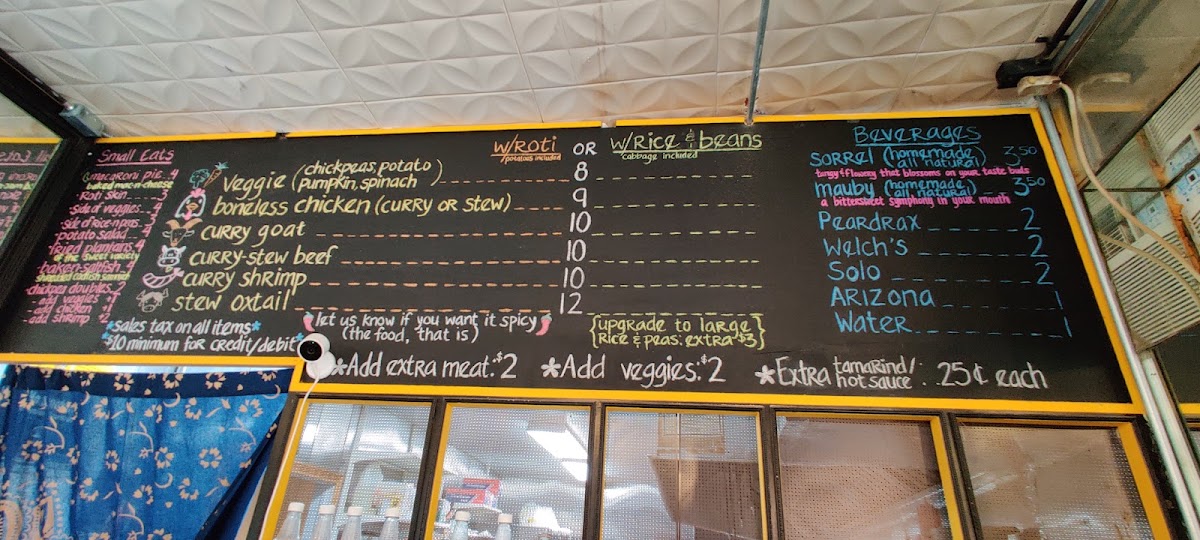 Small Eats
macaroni pie..4
baked mac-n-cheese
Roti skin
side of veggies
side of rice-n-peas
potato salad..4
fried plantains..4
of the sweet variety
baken-saltfish..4
chickpea doubles..2
- add veggies +1
- add chicken +1
- add shrimp +2
*sales tax on all items*
*$10 minimum for credit/debit*
w/Roti OR w/Rice & beans
potatoes included
cabbage included
veggie (chickpeas, potato
pumpkin, spinach) 8
boneless chicken (curry or stew) 9
curry goat 10
curry-stew beef 10
curry shrimp 10
stew oxtail 12
let us know if you want it spicy
(the food, that is)
{upgrade to large
Rice & peas: extra $3}
*Add extra meat: $2 *Add veggies: $2 *Extra tamarind/
hot sauce . . 25¢ each
Beverages
SORREL (homemade
all natural) 3.50
tangy & flowery that blossoms on your taste buds
mauby (homemade
all natural) 3.50
a bittersweet symphony in your mouth
Peardrax 2
Welch's 2
Solo 2
ARIZONA 1
Water 1